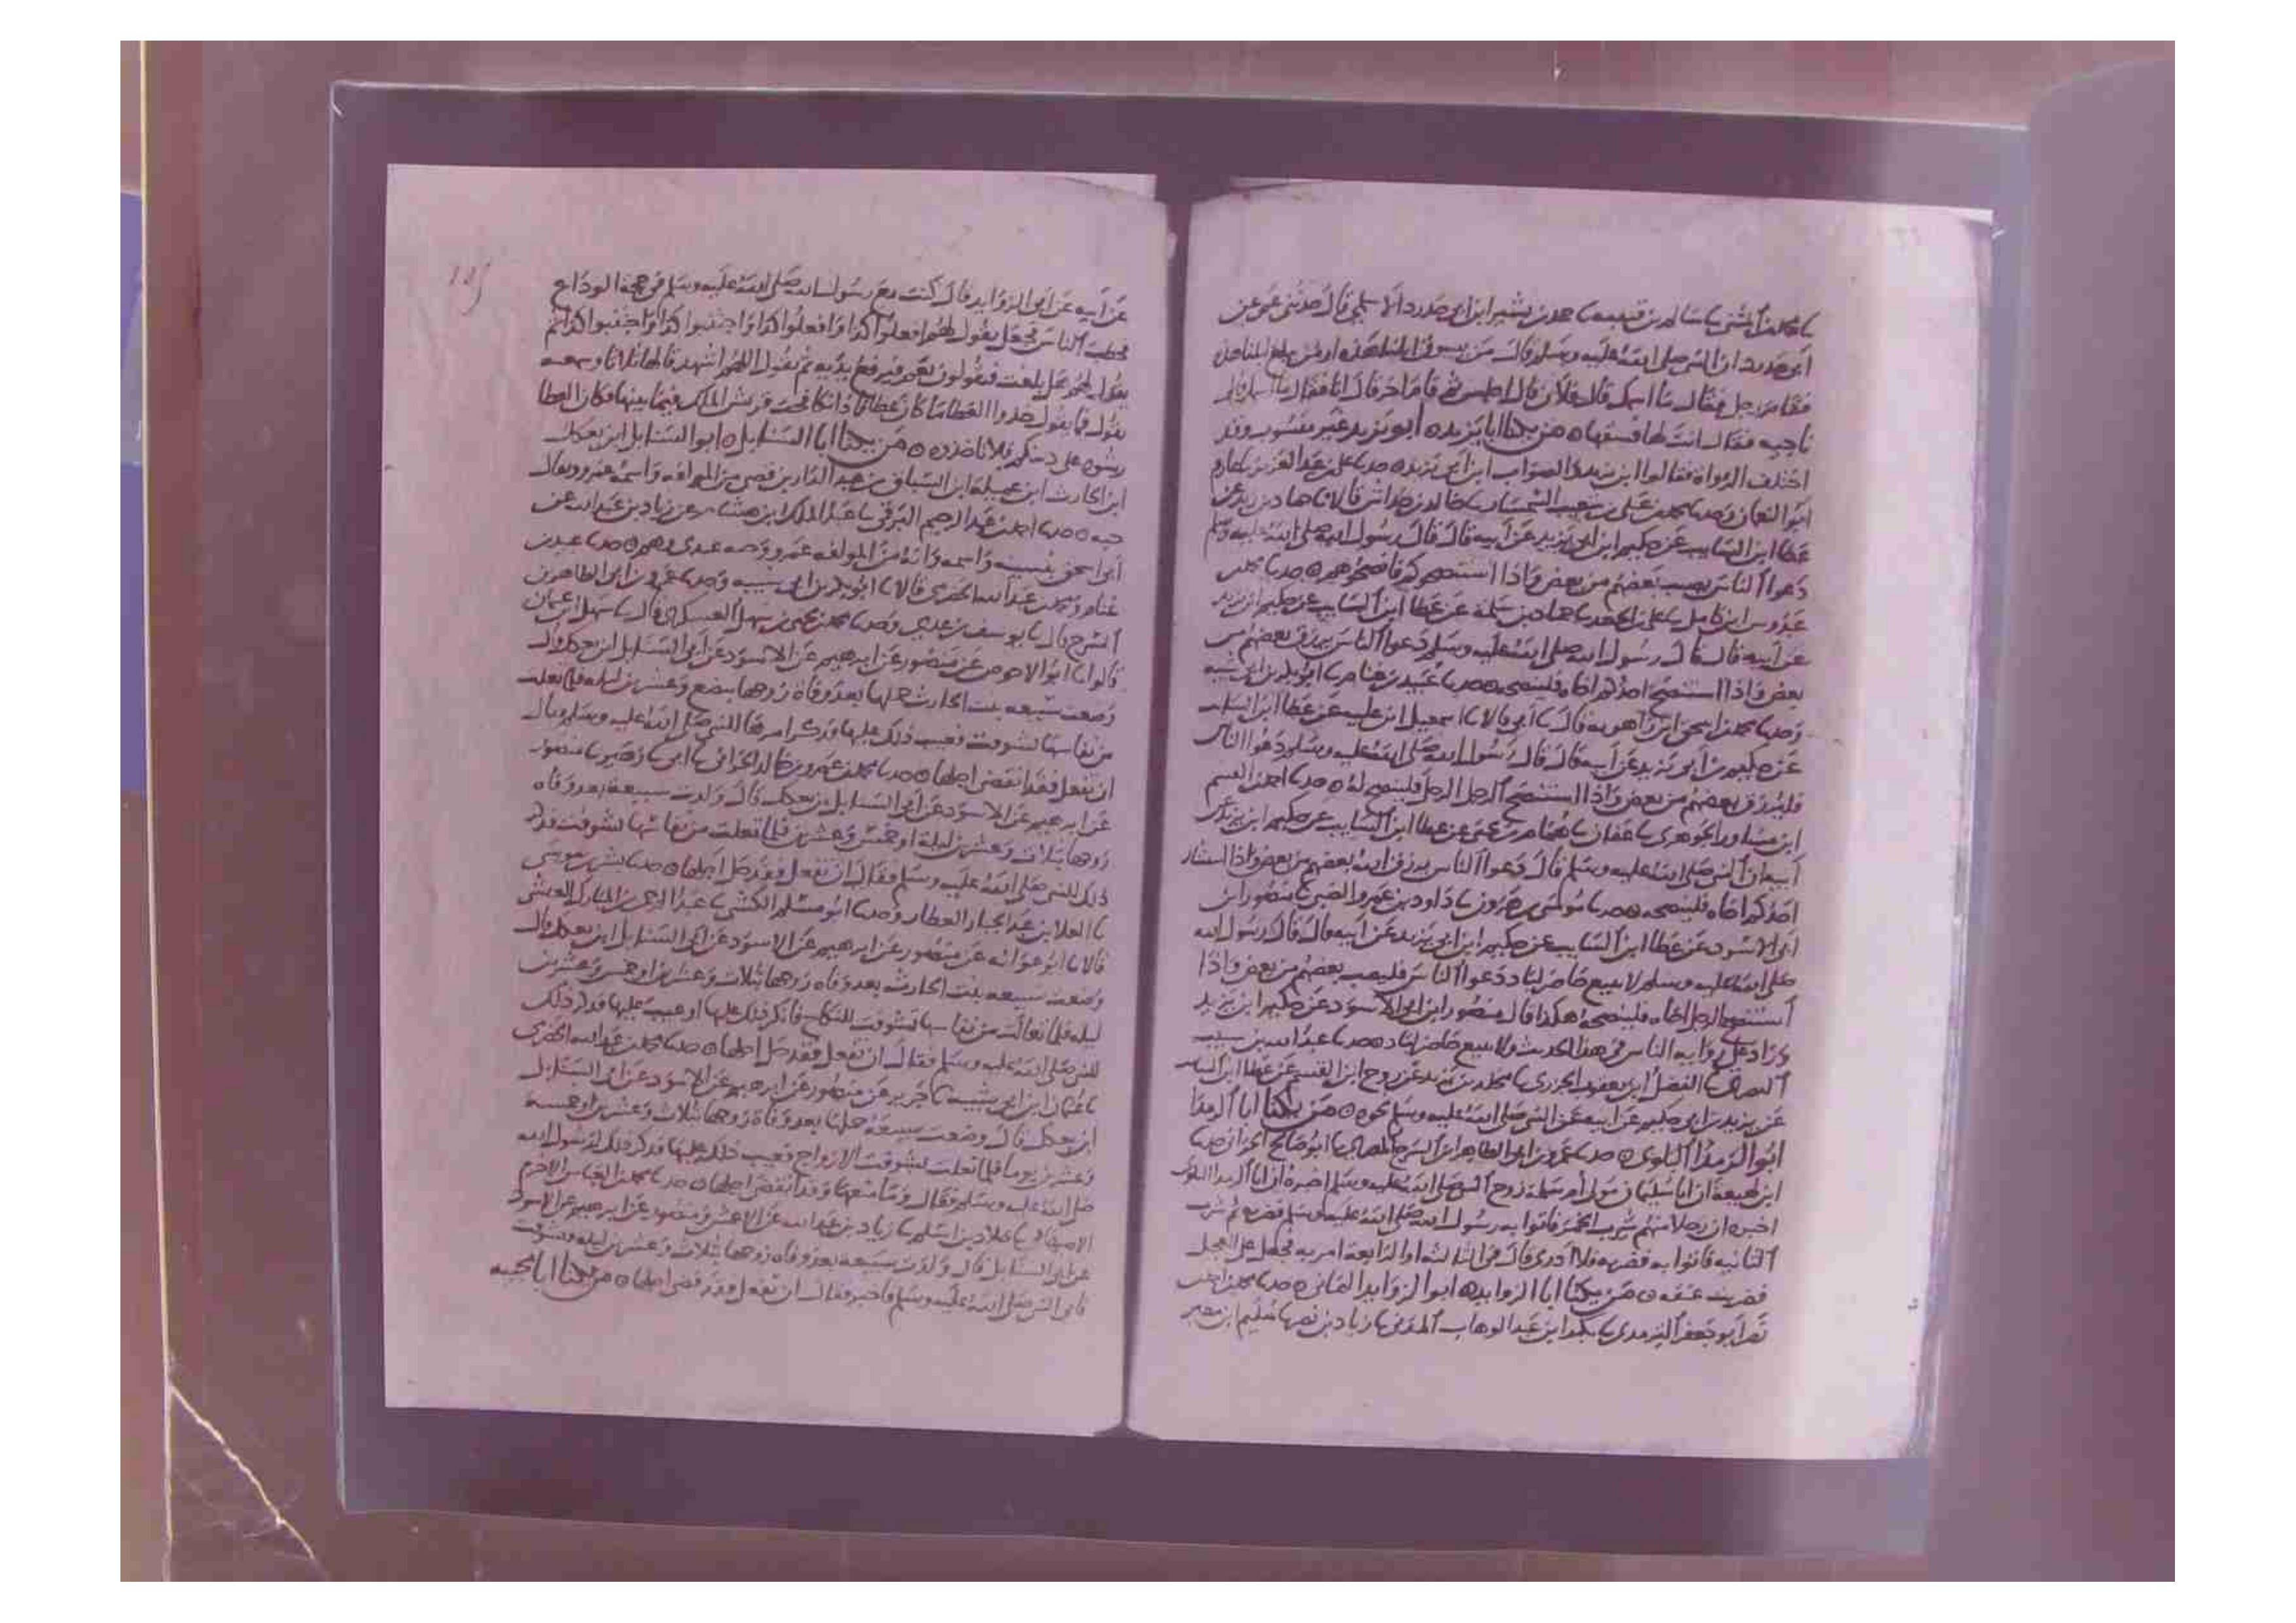 محمد بن المثنى سا سالم بن قتيبة سا حمد بن بشير ابن ابى حدرد الاسلمى قال حدثنى عمى عن
ابى حدرد ان النبى صلى الله عليه وسلم قال من يسوق ابلنا هذه او من يبلغ ابلنا هذه
فقام رجل فقال ما اسمك قال فلان قال اجلس ثم قام اخر قال انا فقال ما اسمك قال
ناجيه فقال انت لها فسقها ه من يكنا ابا يزيد ه ابو يزيد غير منسوب وقد
اختلف الرواة فقالوا ابن يزيد والصواب ابن ابى يزيد ه حدثنا على بن عبد العزيز سا عارم
ابو النعمان وحدثنا محمد بن على بن شعيب السمسار سا خالد بن خداش قالا سا حماد بن زيد عن
عطا ابن السايب عن حكيم ابن ابى يزيد عن ابيه قال قال رسول الله صلى الله عليه وسلم
دعوا الناس يصيب بعضهم من بعض واذا استنصحوكم فانصحوهم ه حدثنا محمد بن
عبدوس ابن كامل سا على بن الجعد سا حماد بن سلمة عن عطا ابن السايب عن حكيم ابن يزيد
عن ابيه قال قال رسول الله صلى الله عليه وسلم دعوا الناس يرزق بعضهم من
بعض واذا استنصح احدكم اخاه فلينصحه ه حدثنا عبيد بن غنام سا ابو بكر بن ابى شيبه
وحدثنا محمد بن اسحق ابن راهويه قال سا ابى قالا سا اسمعيل ابن عليه عن عطا ابن السايب
عن حكيم بن ابى يزيد عن ابيه قال قال رسول الله صلى الله عليه وسلم دعوا الناس
فليرزق بعضهم من بعض واذا استنصح الرجل الرجل فلينصح له ه حدثنا احمد بن القسم
ابن مساور الجوهرى سا عفان سا همام بن يحيى عن عطا ابن السايب عن حكيم ابن يزيد عن
ابيه ان النبى صلى الله عليه وسلم قال دعوا الناس يرزق الله بعضهم من بعض واذا استشار
احدكم اخاه فلينصحه ه حدثنا موسى بن هرون سا داود بن عمرو الضبى سا منصور ابن
ابى الاسود عن عطا ابن السايب عن حكيم ابن ابى يزيد عن ابيه قال قال رسول الله
صلى الله عليه وسلم لا يبيع حاضر لباد دعوا الناس فليصب بعضهم من بعض واذا
استنصح الرجل اخاه فلينصحه هكذا قال منصور ابن ابى الاسود عن حكيم ابن يزيد
وزاد على رواية الناس فى هذا الحديث ولا يبيع حاضر لباد ه حدثنا عبد الله بن
الفضل ابن يعقوب الجزرى سا مخلد بن يزيد عن روح ابن القسم عن عطا ابن السايب
عن يزيد بن ابى حكيم عن ابيه عن النبى صلى الله عليه وسلم نحوه ه من يكنا ابا الرمدا
ابو الرمدا البلوى ه حدثنا عمرو بن ابى الطاهر ابن السرح المصرى سا ابو صالح الحرانى سا
ابن لهيعة ان ابا سليمان مولى ام سلمة زوج النبى صلى الله عليه وسلم اخبره ان ابا الرمدا البلوى
اخبره ان رجلا منهم شرب الخمر فاتوا به رسول الله صلى الله عليه وسلم فضربه ثم شرب
الثانيه فاتوا به فضربه فلا ادرى قال فى الثالثه او الرابعة امر به فجعل على العجل
فضربت عنقه ه من يكنا ابا الزوايد ه ابو الزوايد اليمانى ه حدثنا محمد بن احمد بن
نصر ابو جعفر الترمذى سا بكر ابن عبد الوهاب المدنى سا زياد بن نصر سا سليم ابن مطير
185
عن ابيه عن ابى الزوايد قال كنت مع رسول الله صلى الله عليه وسلم فى حجة الوداع
فخطب الناس فجعل يقول لهم افعلوا كذا وافعلوا كذا واجتنبوا كذا واجتنبوا كذا ثم
يقول لهم هل بلغت فيقولون نعم فيرفع يديه ثم يقول اللهم اشهد قالها ثلاثا وسمعته
يقول فما يقول خذوا العطا ما كان عطا فاذا تجاحفت قريش الملك فيما بينها وكان العطا
رشوه على دينكم فلا تاخذوه ه من يكنا ابا السنابل ه ابو السنابل ابن بعكك
ابن الحارث ابن عميلة ابن السباق بن عبد الدار بن قصى من المولفه واسمه عمرو ويقال
حبه ه حدثنا احمد بن عبد الرحيم البرقى سا عبد الملك ابن هشام عن زياد بن عبد الله عن
ابن اسحق بنسبته واسمه وانه من المولفه
غنام ومحمد بن عبد الله الحضرمى قالا سا ابو بكر بن ابى شيبه وحدثنا عمرو بن ابى الطاهر بن
السرح قال سا يوسف بن عدى وحدثنا محمد بن يحيى بن سهل العسكرى قال سا سهل ابن عثمان
قالوا سا ابو الاحوص عن منصور عن ابرهيم عن الاسود عن ابى السنابل ابن بعكك قال
وضعت سبيعه بنت الحارث حملها بعد وفاة زوجها ببضع وعشرين ليله فلما تعلت
من نفاسها تشوفت فعيب ذلك عليها وذكر امرها للنبى صلى الله عليه وسلم فقال
ان تفعل فقد انقضى اجلها ه حدثنا محمد بن عمرو بن خالد الحرانى سا ابى سا زهير سا منصور
عن ابرهيم عن الاسود عن ابى السنابل بن بعكك قال ولدت سبيعة بعد وفاه
زوجها بثلاث وعشرين ليلة او خمس وعشرين فلما تعلت من نفاسها تشوفت فذكر
ذلك للنبى صلى الله عليه وسلم فقال ان تفعل فقد حل اجلها ه حدثنا بشر بن موسى
سا العلا بن عبد الجبار العطار وحدثنا ابو مسلم الكشى سا عبد الرحمن بن المبارك العيشى
قالا سا ابو عوانه عن منصور عن ابرهيم عن الاسود عن ابى السنابل ابن بعكك قال
وضعت سبيعه بنت الحارث بعد وفاه زوجها بثلاث وعشرين او خمس وعشرين
ليله فلما تعالت من نفاسها تشوفت للنكاح فانكر ذلك عليها او عيب عليها فذكر ذلك
للنبى صلى الله عليه وسلم فقال ان تفعل فقد حل اجلها ه حدثنا محمد بن عبد الله الحضرمى
سا عثمان ابن ابى شيبه سا جرير عن منصور عن ابرهيم عن الاسود عن ابى السنابل
ابن بعكك قال وضعت سبيعة حملها بعد وفاة زوجها بثلاث وعشرين او خمسة
وعشرين يوما فلما تعلت تشوفت الازواج فعيب ذلك عليها فذكر ذلك لرسول الله
صلى الله عليه وسلم فقال وما منعها وقد انقضى اجلها ه حدثنا محمد بن العباس الاخرم
الاصبهانى سا خلاد بن اسلم سا زياد بن عبد الله عن الاعمش ومنصور عن ابرهيم عن الاسود
عن ابى السنابل قال ولدت سبيعة بعد وفاة زوجها بثلاث وعشرين ليله وتشوفت
فاتى النبى صلى الله عليه وسلم فاخبر فقال ان تفعل فقد قضى اجلها ه من يكنا ابا